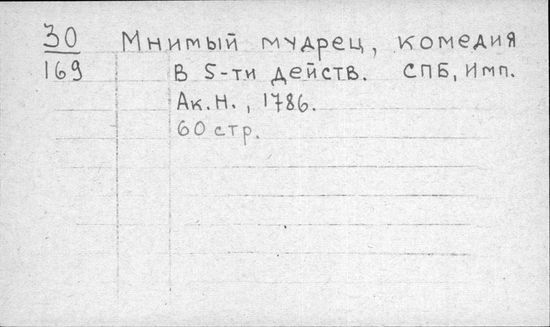 30 Мнимый мудрец, комедия
169 в 5-ти действ. СПБ, Имп.
Ак. Н., 1786.
60 стр.